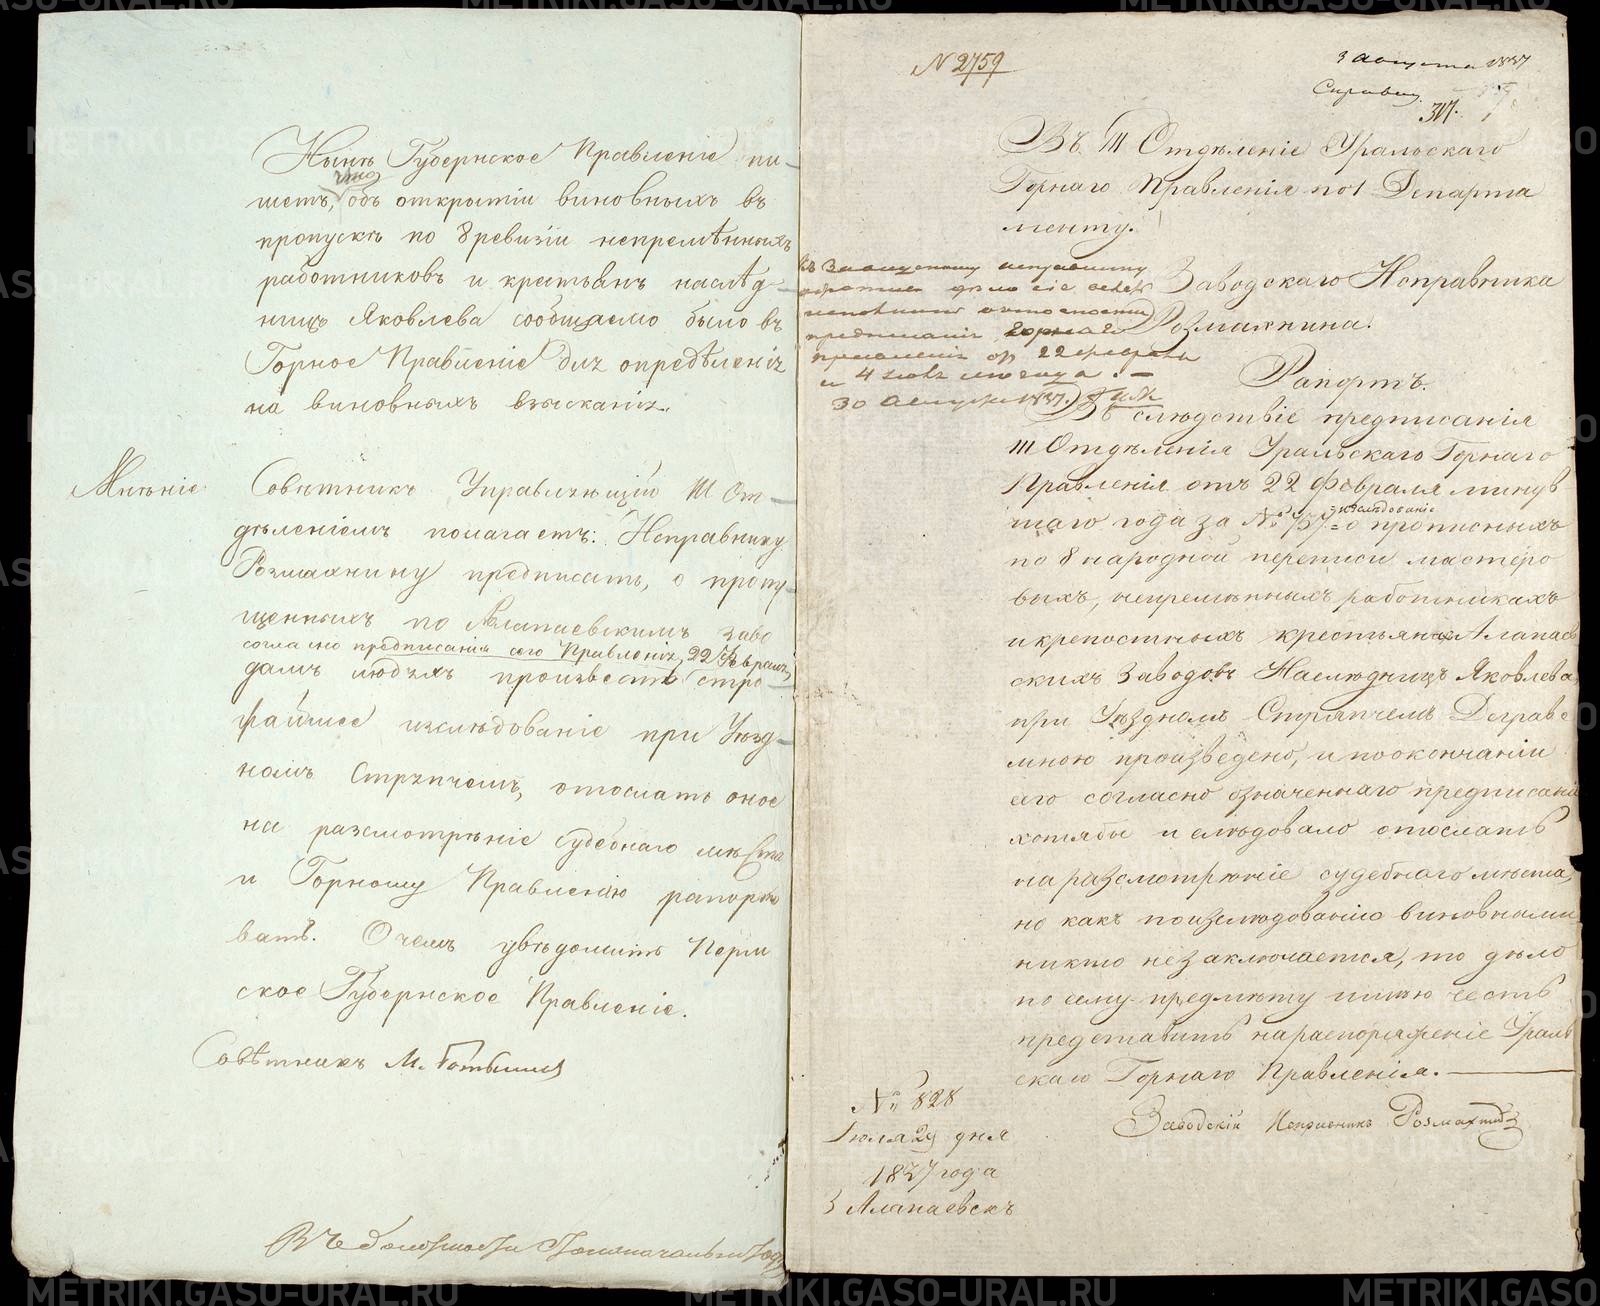 Нынѣ Губернское Правленіе пи-
шетъ, что объ открытіи виновныхъ въ
пропускѣ по 8 ревизіи непремѣнныхъ
работниковъ и крестьянъ наслѣд-
ницъ Яковлева сообщаемо было въ
Горное Правленіе для опредѣленія
на виновныхъ взысканія.
Мнѣніе
Совѣтникъ Управляющій III От-
дѣленіемъ полагаетъ: Исправнику
Розмахнину предписать, о пропу-
щенныхъ по Алапаевскимъ заво
согласно предписанія сего Правленія, 22 Февраля
дамъ людяхъ произвесть стро-
жайшее изслѣдованіе при Уѣзд-
номъ Стряпчемъ, отослать оное
на разсмотрѣніе судебнаго мѣста
и Горному Правленію рапорто
вать. О чемъ увѣдомить Перм
ское Губернское Правленіе.
Совѣтникъ М.
Въ должности Столоначальника
N 2759
3 Августа 1837
Справки
317.
Въ III Отдѣленіе Уральскаго
Горнаго Правленія по 1 Департа
менту.
Заводскаго Исправника
Розмахнина.
Къ Заводскому исправнику
обратить дѣло сіе
предписаніи горнаго
правленія от 22 февраля
и 4
30 Августа 1837.
Рапортъ.
Въ слѣдствіе предписанія
III Отдѣленія Уральскаго Горнаго
Правленія отъ 22 Февраля минув
шаго года за № 757 = изслѣдованіе о прописныхъ
по 8 народной переписи мастеро
выхъ, непремѣнныхъ работникахъ
и крепостныхъ крестьянъ Алапаев
скихъ Заводовъ Наслѣдницъ Яковлева,
при Уѣздномъ Стряпчемъ Деграве
мною произведено, и по окончаніи
его согласно означеннаго предписанія
хотябы и слѣдовало отослать
на разсмотрѣніе судебнаго мѣста,
но какъ по изслѣдованію виновными
никто незаключается, то дѣло
по сему предмѣту имѣю честь
представить на распоряженіе Ураль
скаго Горнаго Правленія.
Заводскій Исправникъ Розмахнинъ
№ 828
Іюля 29 дня
1837 года
З Алапаевскъ
METRIKI.GASO-URAL.RU